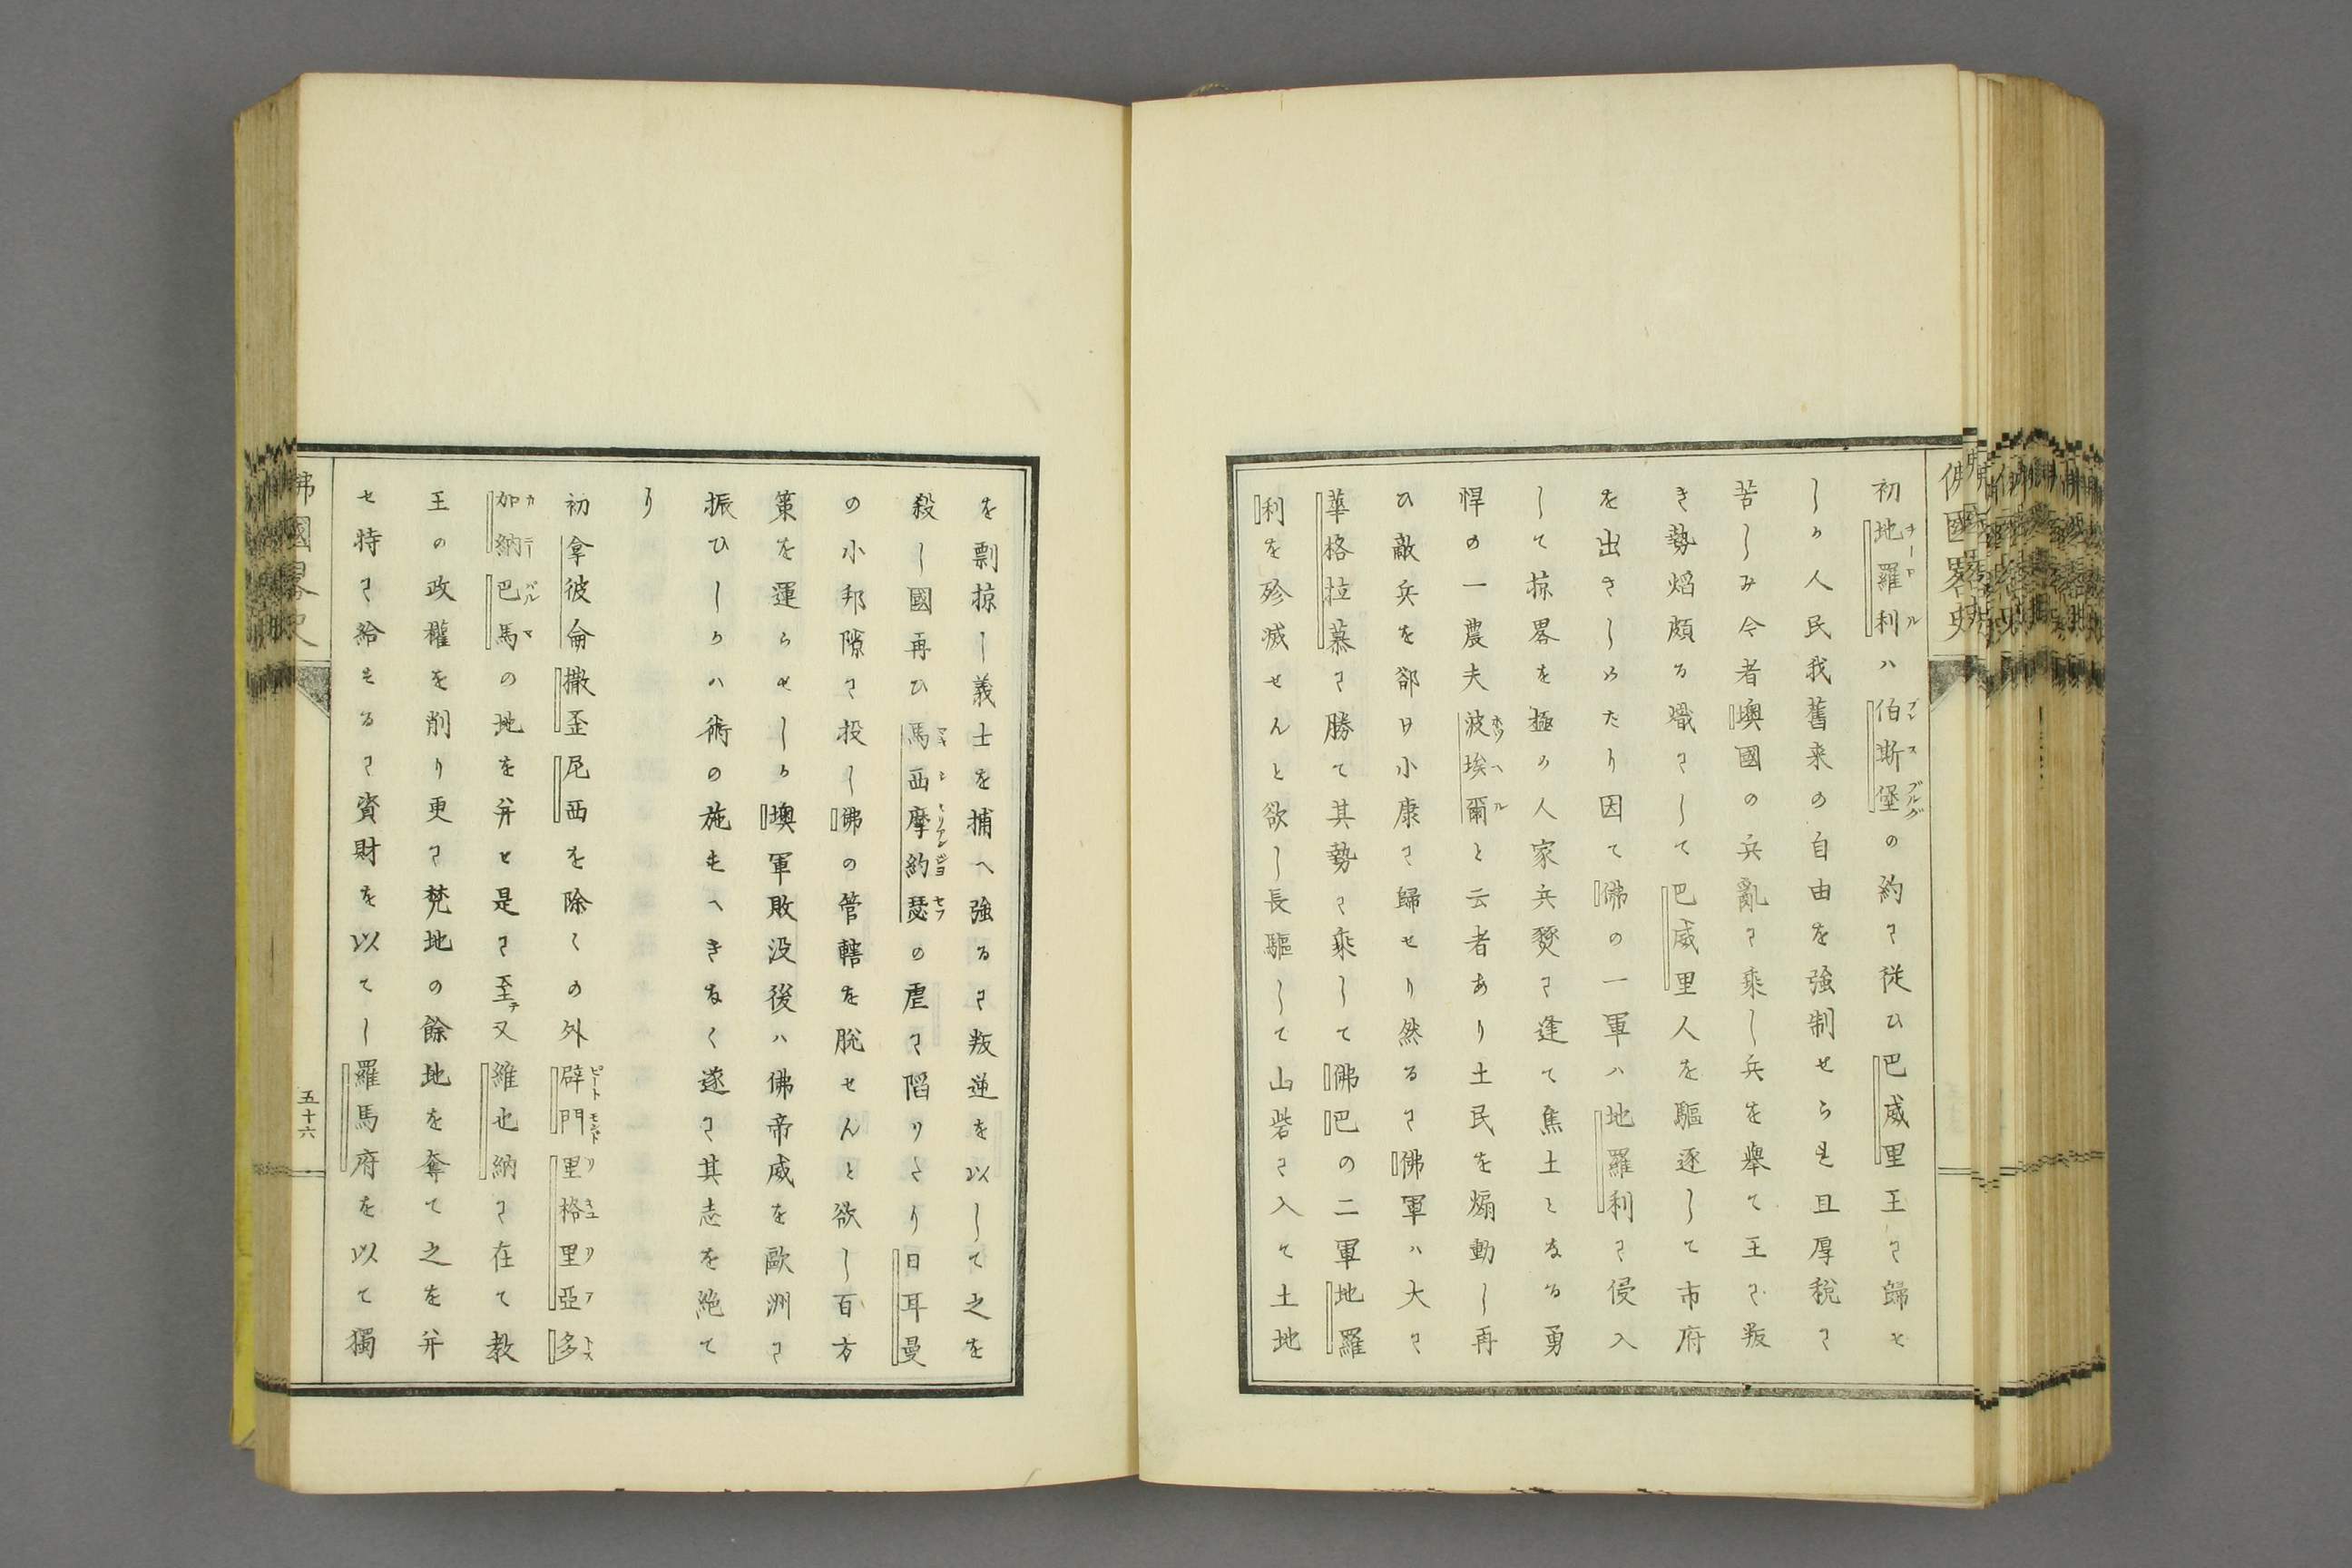 佛國畧史
初地羅利ハ伯斯堡の約に従ひ巴威里王に歸せ
チーロル
プレスブルグ
しか人民我舊来の自由を強制せられ且厚税に
苦しみ今者墺國の兵亂に乘し兵を擧て王に叛
き勢焰頗る熾にして巴威里人を驅逐して市府
を出さしめたり因て佛の一軍ハ地羅利に侵入
して掠畧を極め人家兵燹に逢て焦土となる勇
悍の一農夫波埃爾と云者あり土民を煽動し再
ホツヘル
ひ敵兵を卻け小康に歸せり然るに佛軍ハ大に
華格拉慕に勝て其勢に乘して佛巴の二軍地羅
利を殄滅せんと欲し長驅して山砦に入て土地
を剽掠し義士を捕へ強るに叛逆を以して之を
殺し國再ひ馬西摩約瑟の虐に陷りたり日耳曼
の小邦隙に投し佛の管轄を脫せんと欲し百方
策を運らせしか墺軍敗没後ハ佛帝威を歐洲に
振ひしかハ術の施すへきなく遂に其志を絶て
り
初拿彼侖撒丕尼西を除くの外辟門里格里亞多
ピートモント
リキユリア
加納巴馬の地を并せ是に至テ又維也納に在て教
カニー
パルマ
王の政權を削り更に梵地の餘地を奪て之を并
せ特に給するに資財を以てし羅馬府を以て獨
佛國畧史
五十六